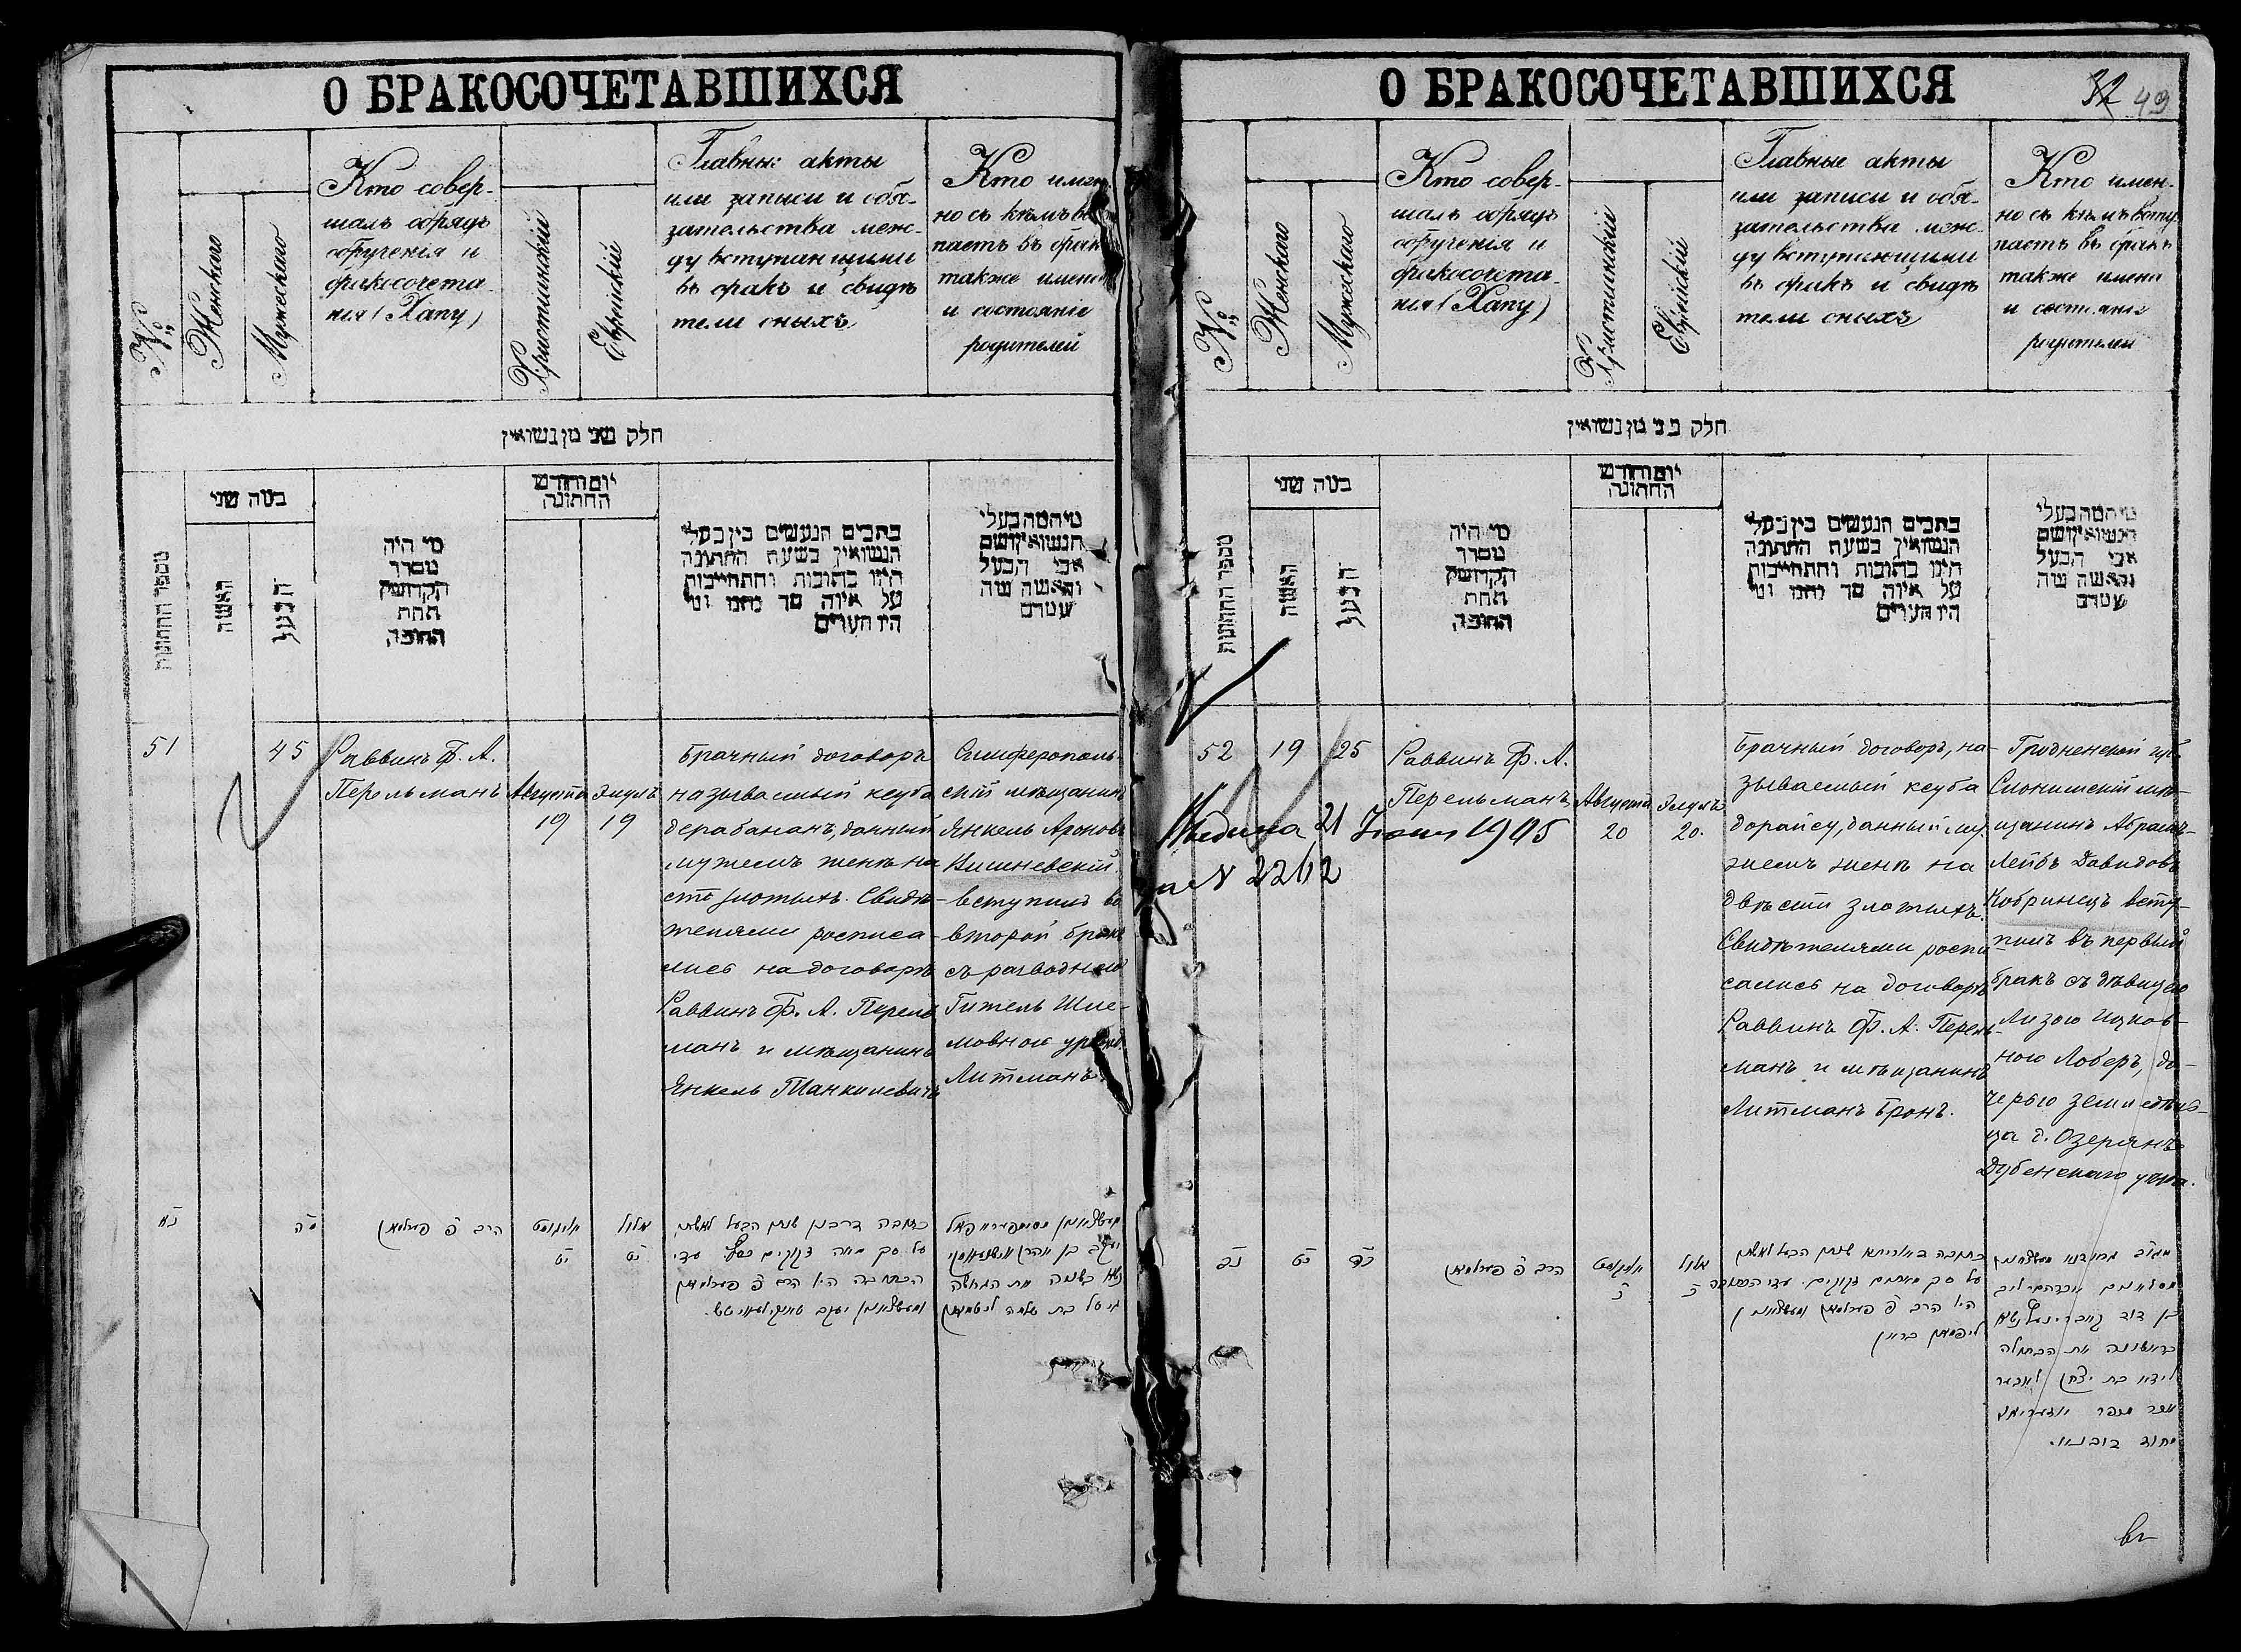 О БРАКОСОЧЕТАВШИХСЯ
№
Женскаго
Мужескаго
Кто совер-
шалъ обрядъ
обрученія и
бракосочета-
нія (Хапу)
Христіанскій
Еврейскій
Главны: акты
или записи и обя-
зательства меж-
ду вступающими
въ бракъ и свидѣ
тели оныхъ
Кто имен
но съ кѣмъ
паетъ въ брак
также имена
и состояніе
родителей
חלק שני מן נשואין
מספר החתונות
כמה שני
האשה
הבעל
מי היה
מסדר
הקדושין
תחת
החופה
יום וחודש
החתונה
כתבים הנעשים בין בעלי
הנשואין בשעת החתונה
היינו כתובות והתחייבות
על איזה סך נתנו ומי
היו העדים
מי המה בעלי
הנשואין ושם
אבי הבעל
והאשה ומה
עמדם
51
45
Раввинъ Ф. А.
Перельманъ
Августа
19
Элулъ
19
Брачный договоръ
называемый кеуба
дерабананъ, данный
мужемъ женѣ на
сто злотыхъ. Свидѣ-
телями росписа-
лись на договорѣ
Раввинъ Ф. А. Перель
манъ и мѣщанинъ
Янкель Манкилевичъ
Симферополь-
скій мѣщанинъ
Янкель Ароновъ
Вишневскій
вступилъ во
второй бракъ
съ разводною
Гитель Шле-
мовной урожд.
Литманъ.
נא
מה
הרב פ׳ פערלמאן
אויגוסט
יט
אלול
יט
כתובה דרבנן שנתן הבעל לאשתו
על סך מאה זקוקים כסף. עדי
הכתובה היו הרב פ׳ פערלמאן
О БРАКОСОЧЕТАВШИХСЯ
32 49
№
Женскаго
Мужескаго
Кто совер-
шалъ обрядъ
обрученія и
бракосочета-
нія (Хапу)
Христіанскій
Еврейскій
Главные акты
или записи и обя-
зательства меж-
ду вступающими
въ бракъ и свидѣ
тели оныхъ
Кто имен-
но съ кѣмъ всту
паетъ въ бракъ
также имена
и состояніе
родителей
חלק שני מן נשואין
מספר החתונות
כמה שני
האשה
הבעל
מי היה
מסדר
הקדושין
תחת
החופה
יום וחודש
החתונה
כתבים הנעשים בין בעלי
הנשואין בשעת החתונה
היינו כתובות והתחייבות
על איזה סך נתנו ומי
היו העדים
מי המה בעלי
הנשואין ושם
אבי הבעל
והאשה ומה
עמדם
52
19
25
Раввинъ Ф. А.
Перельманъ
Августа
20
Элулъ
20.
21 1905
за № 2262
Брачный договоръ, на-
зываемый кеуба
дорайсу, данный му-
жемъ женѣ на
двѣсти злотыхъ.
Свидѣтелями роспи
сались на договорѣ
Раввинъ Ф. А. Перель-
манъ и мѣщанинъ
Литманъ Бронъ.
Гродненской губ.
Слонимскій мѣ-
щанинъ Абрамъ-
Лейбъ Давидовъ
Кобринецъ всту-
пилъ въ первый
бракъ съ дѣвицею
Лизою Ицков-
ною Лоберъ, до-
черью земледѣль-
ца д. Озерянъ
Дубенскаго уѣзда.
נב
יט
כה
הרב פ׳ פערלמאן
אויגוסט
כ
אלול
כ
כתובה דאורייתא שנתן הבעל לאשתו
על סך מאתים זקוקים. עדי הכתובה
היו הרב פ׳ פערלמאן
בן דוד
בראשונה את הבתולה
בת יצחק